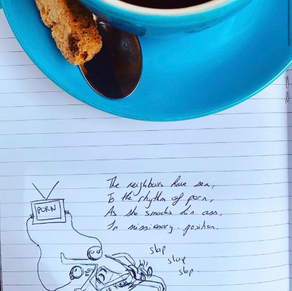 The neighbours have sex,
To the rhythm of porn,
As she smacks his ass,
In missionary position.
PORN
slap
slap
slap